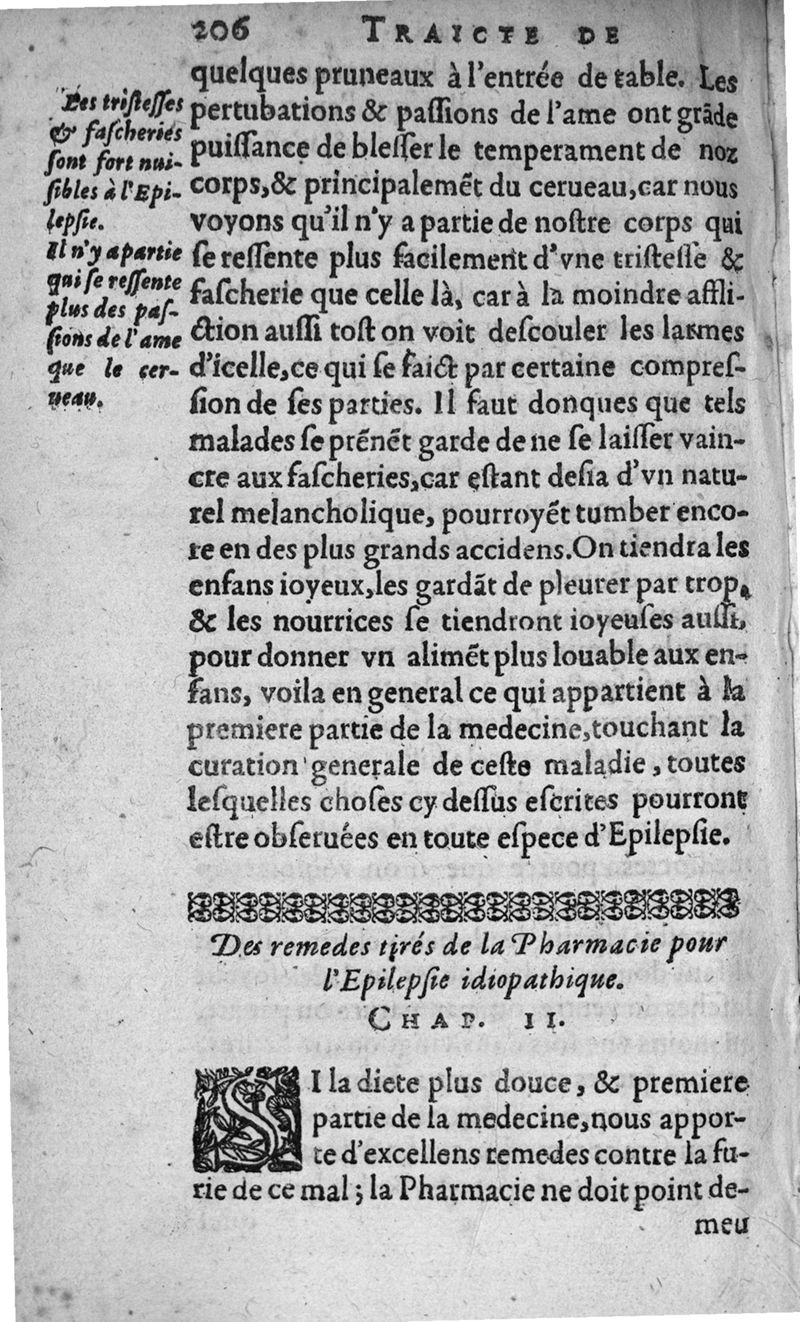 206 TRAICTE DE
quelques pruneaux à l'entrée de table. Les
pertubations & paſſions de l'ame ont grãde
puiſſance de bleſſer le temperament de noz
corps,& principalemẽt du cerueau,car nous
voyons qu'il n'y a partie de noſtre corps qui
ſe reſſente plus facilement d'vne triſteſſe &
faſcherie que celle là, car à la moindre affli-
ction auſſi toſt on voit deſcouler les larmes
d'icelle,ce qui ſe faict par certaine compreſ-
ſion de ſes parties. Il faut donques que tels
malades ſe prẽnẽt garde de ne ſe laiſſer vain-
cre aux faſcheries,car eſtant deſia d'vn natu-
rel melancholique, pourroyẽt tumber enco-
re en des plus grands accidens.On tiendra les
enfans ioyeux,les gardãt de pleurer par trop,
& les nourrices ſe tiendront ioyeuſes auſſi,
pour donner vn alimẽt plus louable aux en-
fans, voila en general ce qui appartient à la
premiere partie de la medecine,touchant la
curation generale de ceſte maladie, toutes
leſquelles choſes cy deſſus eſcrites pourront
eſtre obſeruées en toute eſpece d'Epilepſie.
Des triſteſſes
& faſcheries
ſont fort nui-
ſibles à l'Epi-
lepſie.
Il n'y a partie
qui ſe reſſente
plus des paſ-
ſions de l'ame
que le cer-
ueau.
Des remedes tirés de la Pharmacie pour
l'Epilepſie idiopathique.
CHAP. II.
SI la diete plus douce, & premiere
partie de la medecine,nous appor-
te d'excellens remedes contre la fu-
rie de ce mal; la Pharmacie ne doit point de-
meu